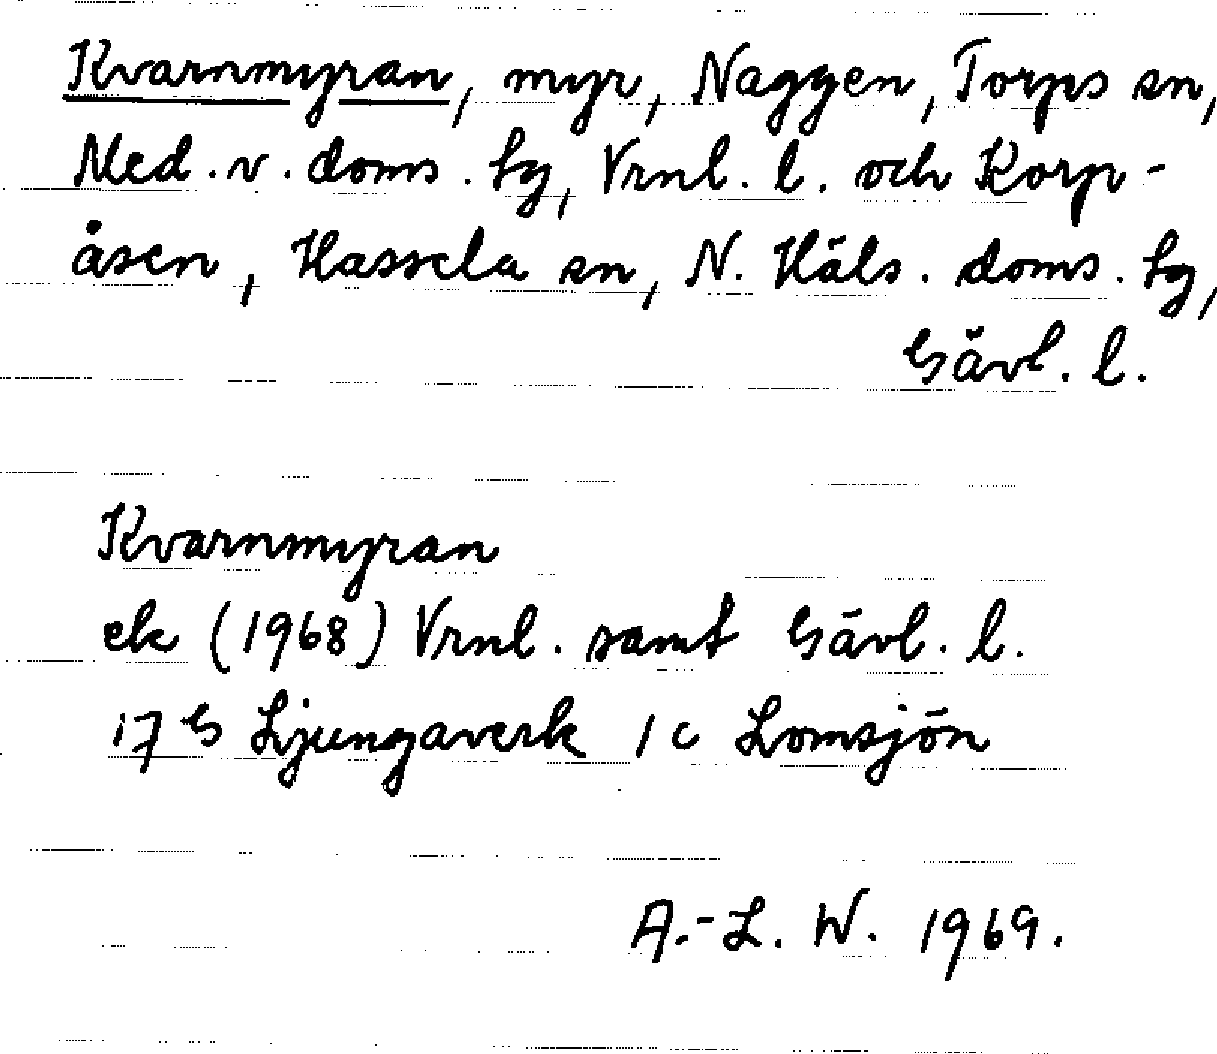 Kvarnmyran, myr, Naggen, Torps sn,
Med. v. doms. hg, Vrnl. l. och Korp-
åsen, Hassela sn, N. Häls. doms. hg,
Gävl. l.
Kvarnmyran
ek (1968) Vrnl. samt Gävl. l.
17 G Ljungaverk 1 c Lomsjön
A.-L. W. 1969.